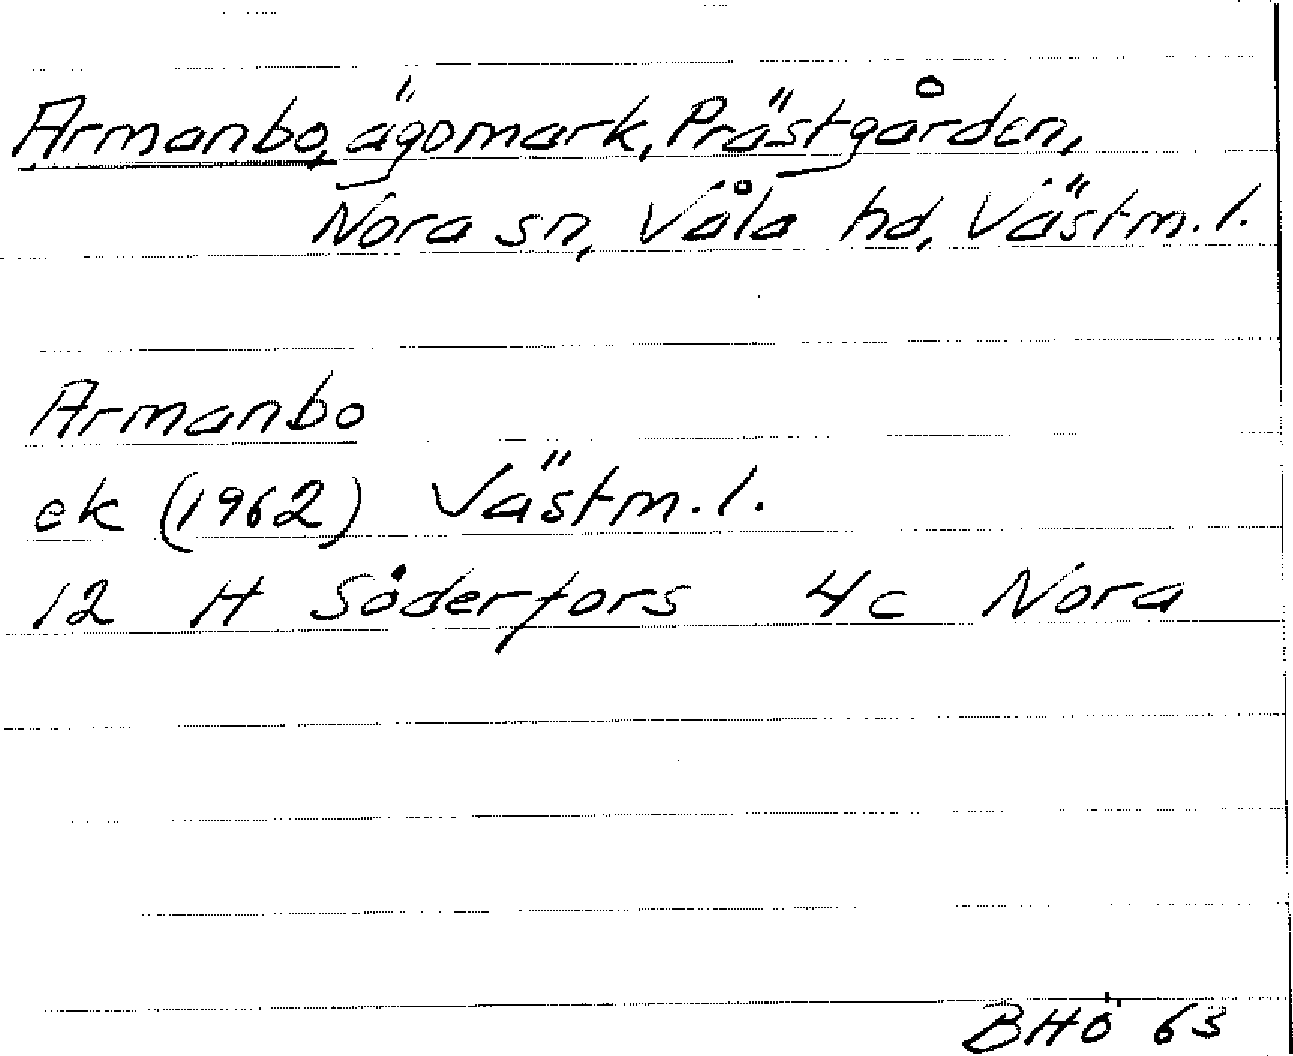 Armanbo, ägomark, Prästgården,
Nora sn, Våla hd, Västm. l.
Armanbo
ek (1962) Västm. l.
12 H Söderfors 4c Nora
BHÖ 63